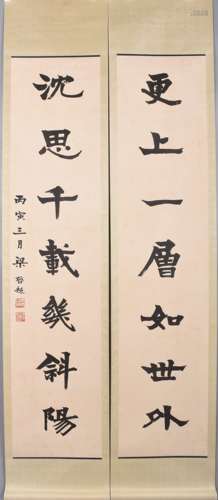 更上一層如世外
沈思千載幾斜陽
丙寅三月梁啓超